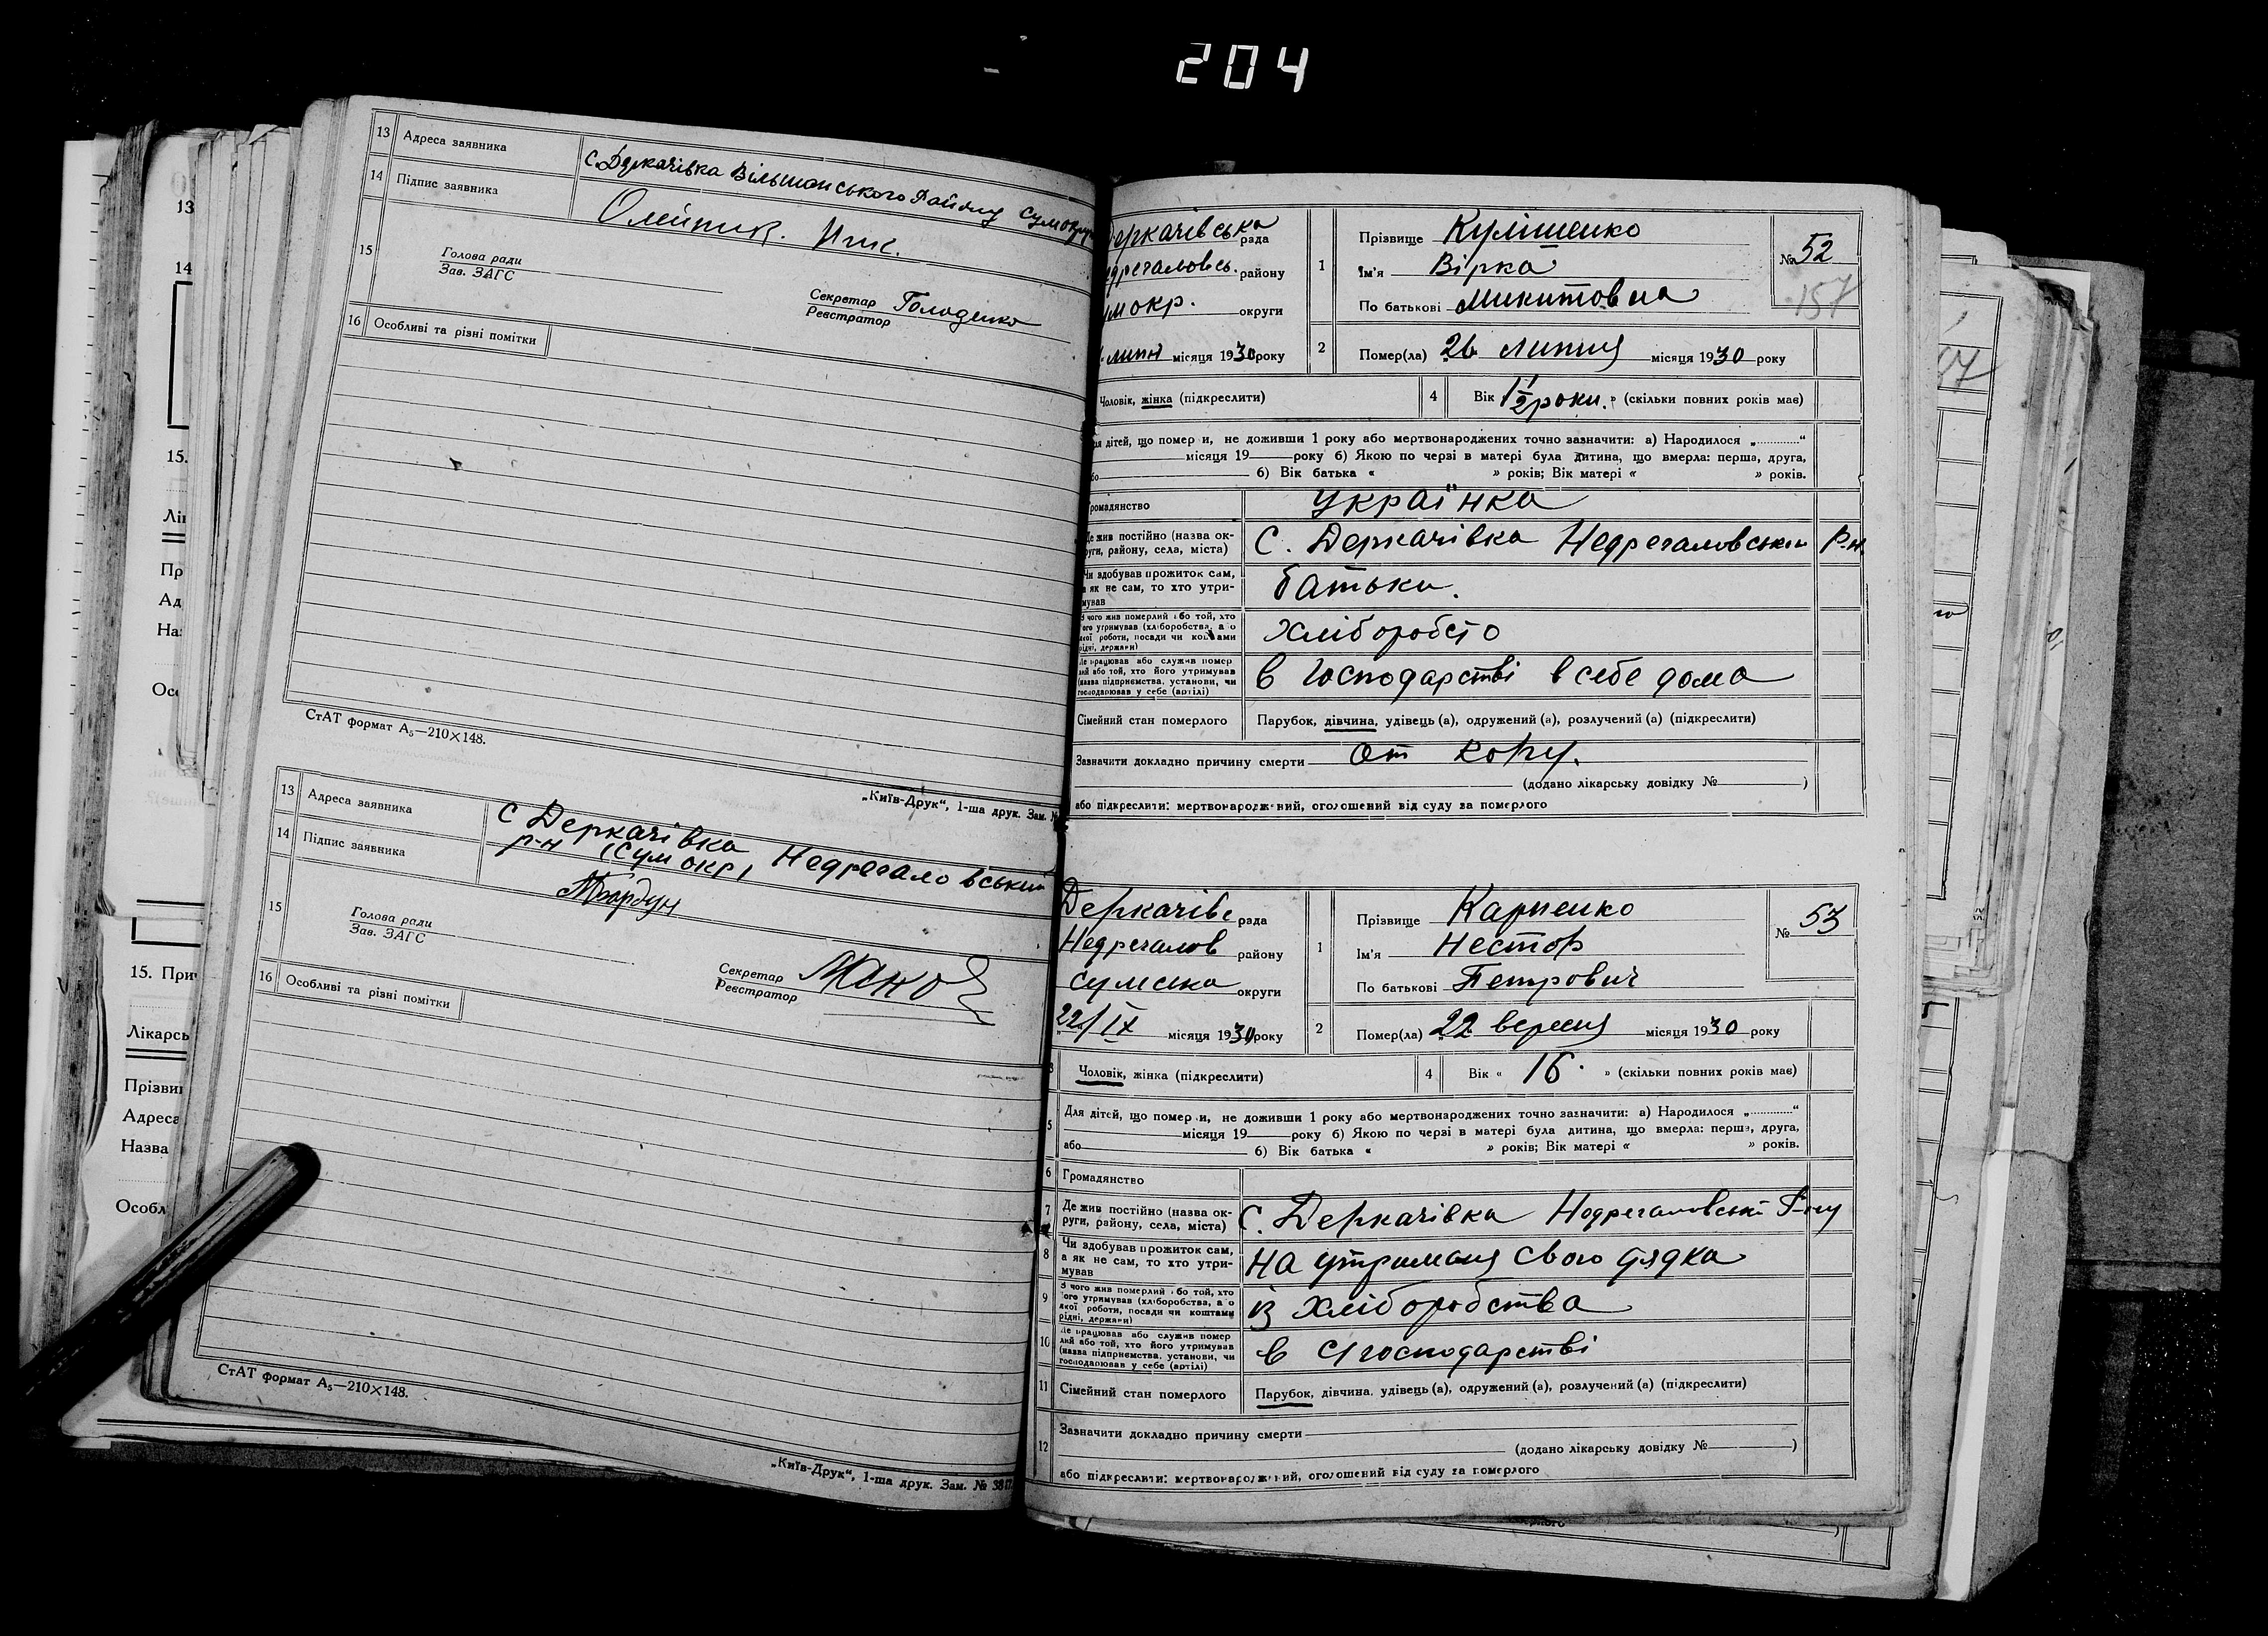 204
13 Адреса заявника с. Деркачівка Вільшанського Району Сумокруги
14 Підпис заявника Олейник.
15
Голова ради
Зав. ЗАГС
Секретар Голоденко
Реєстратор
16 Особливі та різні помітки
СтАТ формат А₅—210×148.
„Київ-Друк“, 1-ша друк. Зам. №
13 Адреса заявника с Деркачівка Недрегаловський
р-н (Сум окр)
14 Підпис заявника
15
Голова ради
Зав. ЗАГС
Секретар
Реєстратор
16 Особливі та різні помітки
СтАТ формат А₅—210×148.
„Київ-Друк“, 1-ша друк. Зам. №
Деркачівська рада
району
округи
липня місяця 1930 року
1 Прізвище Кулішенко
Ім'я Вірка
По батькові Микитовна
№ 52
157
2 Помер(ла) 26 липня місяця 1930 року
Чоловік, жінка (підкреслити)
4 Вік 1 1/2 роки. » (скільки повних років має)
Для дітей, що померли, не доживши 1 року або мертвонароджених точно зазначити: а) Народилося „............“
місяця 19 року б) Якою по черзі в матері була дитина, що вмерла: перша, друга,
або б) Вік батька « » років; Вік матері « » років.
Громадянство українка
Де жив постійно (назва ок-
руги, району, села, міста) С. Деркачівка Недрегаловський Р-н.
Чи здобував прожиток сам,
а як не сам, то хто утри-
мував батьки.
З чого жив померлий або той, хто
його утримував (хліборобства, або
якої роботи, посади чи коштами
рідні, держави) хліборобсто
Де працював або служив помер
лий або той, хто його утримував
(назва підприємства, установи, чи
господарював у себе (артілі) в господарстві в себе дома
Сімейний стан померлого Парубок, дівчина, удівець (а), одружений (а), розлучений (а) (підкреслити)
Зазначити докладно причину смерти от кору.
(додано лікарську довідку № )
або підкреслити: мертвонароджений, оголошений від суду за померлого
Деркачівс рада
Недрегалов району
Сумська округи
22/IX місяця 1930 року
1 Прізвище Карпенко
Ім'я Нестор
По батькові Петрович
№ 53
2 Помер(ла) 22 вересня місяця 1930 року
3 Чоловік, жінка (підкреслити)
4 Вік « 16 » (скільки повних років має)
5 Для дітей, що померли, не доживши 1 року або мертвонароджених точно зазначити: а) Народилося „............“
місяця 19 року б) Якою по черзі в матері була дитина, що вмерла: перша, друга,
або б) Вік батька « » років; Вік матері « » років.
6 Громадянство
7 Де жив постійно (назва ок-
руги, району, села, міста) С. Деркачівка Недрегаловськ Р-ну
8 Чи здобував прожиток сам,
а як не сам, то хто утри-
мував на утриманя свого дядка
9 З чого жив померлий або той, хто
його утримував (хліборобства, або
якої роботи, посади чи коштами
рідні, держави) із хліборобства
10 Де працював або служив помер
лий або той, хто його утримував
(назва підприємства, установи, чи
господарював у себе (артілі) в С/господарстві
11 Сімейний стан померлого Парубок, дівчина, удівець (а), одружений (а), розлучений (а) (підкреслити)
12 Зазначити докладно причину смерти
(додано лікарську довідку № )
або підкреслити: мертвонароджений, оголошений від суду за померлого